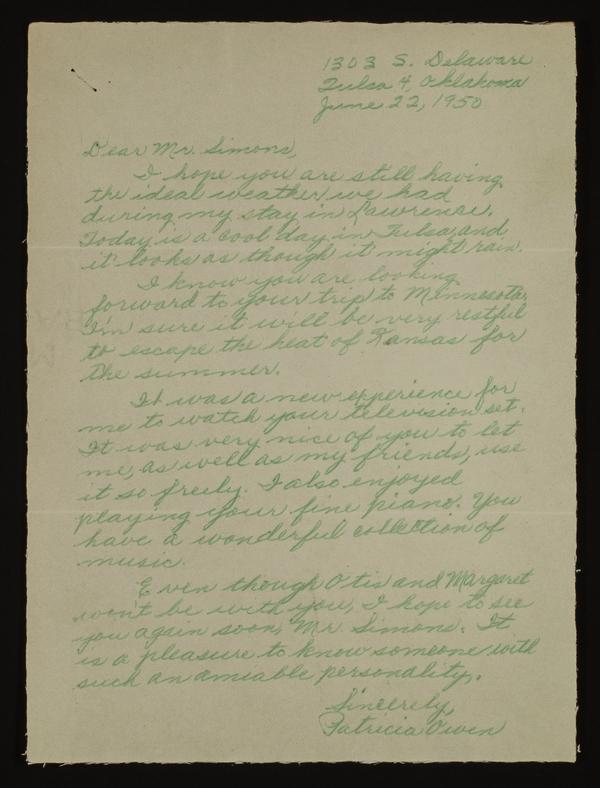 1303 S. Delaware
Tulsa 4, Oklahoma
June 22, 1950
Dear Mr. Simons,
I hope you are still having
the ideal weather we had
during my stay in Lawrence.
Today is a cool day in Tulsa, and
it looks as though it might rain.
I know you are looking
forward to your trip to Minnesota.
I'm sure it will be very restful
to escape the heat of Kansas for
the summer.
It was a new experience for
me to watch your television set.
It was very nice of you to let
me, as well as my friends, use
it so freely. I also enjoyed
playing your fine piano. You
have a wonderful collection of
music.
Even though Otis and Margaret
won't be with you, I hope to see
you again soon, Mr. Simons. It
is a pleasure to know someone with
such an amiable personality.
Sincerely,
Patricia Owen